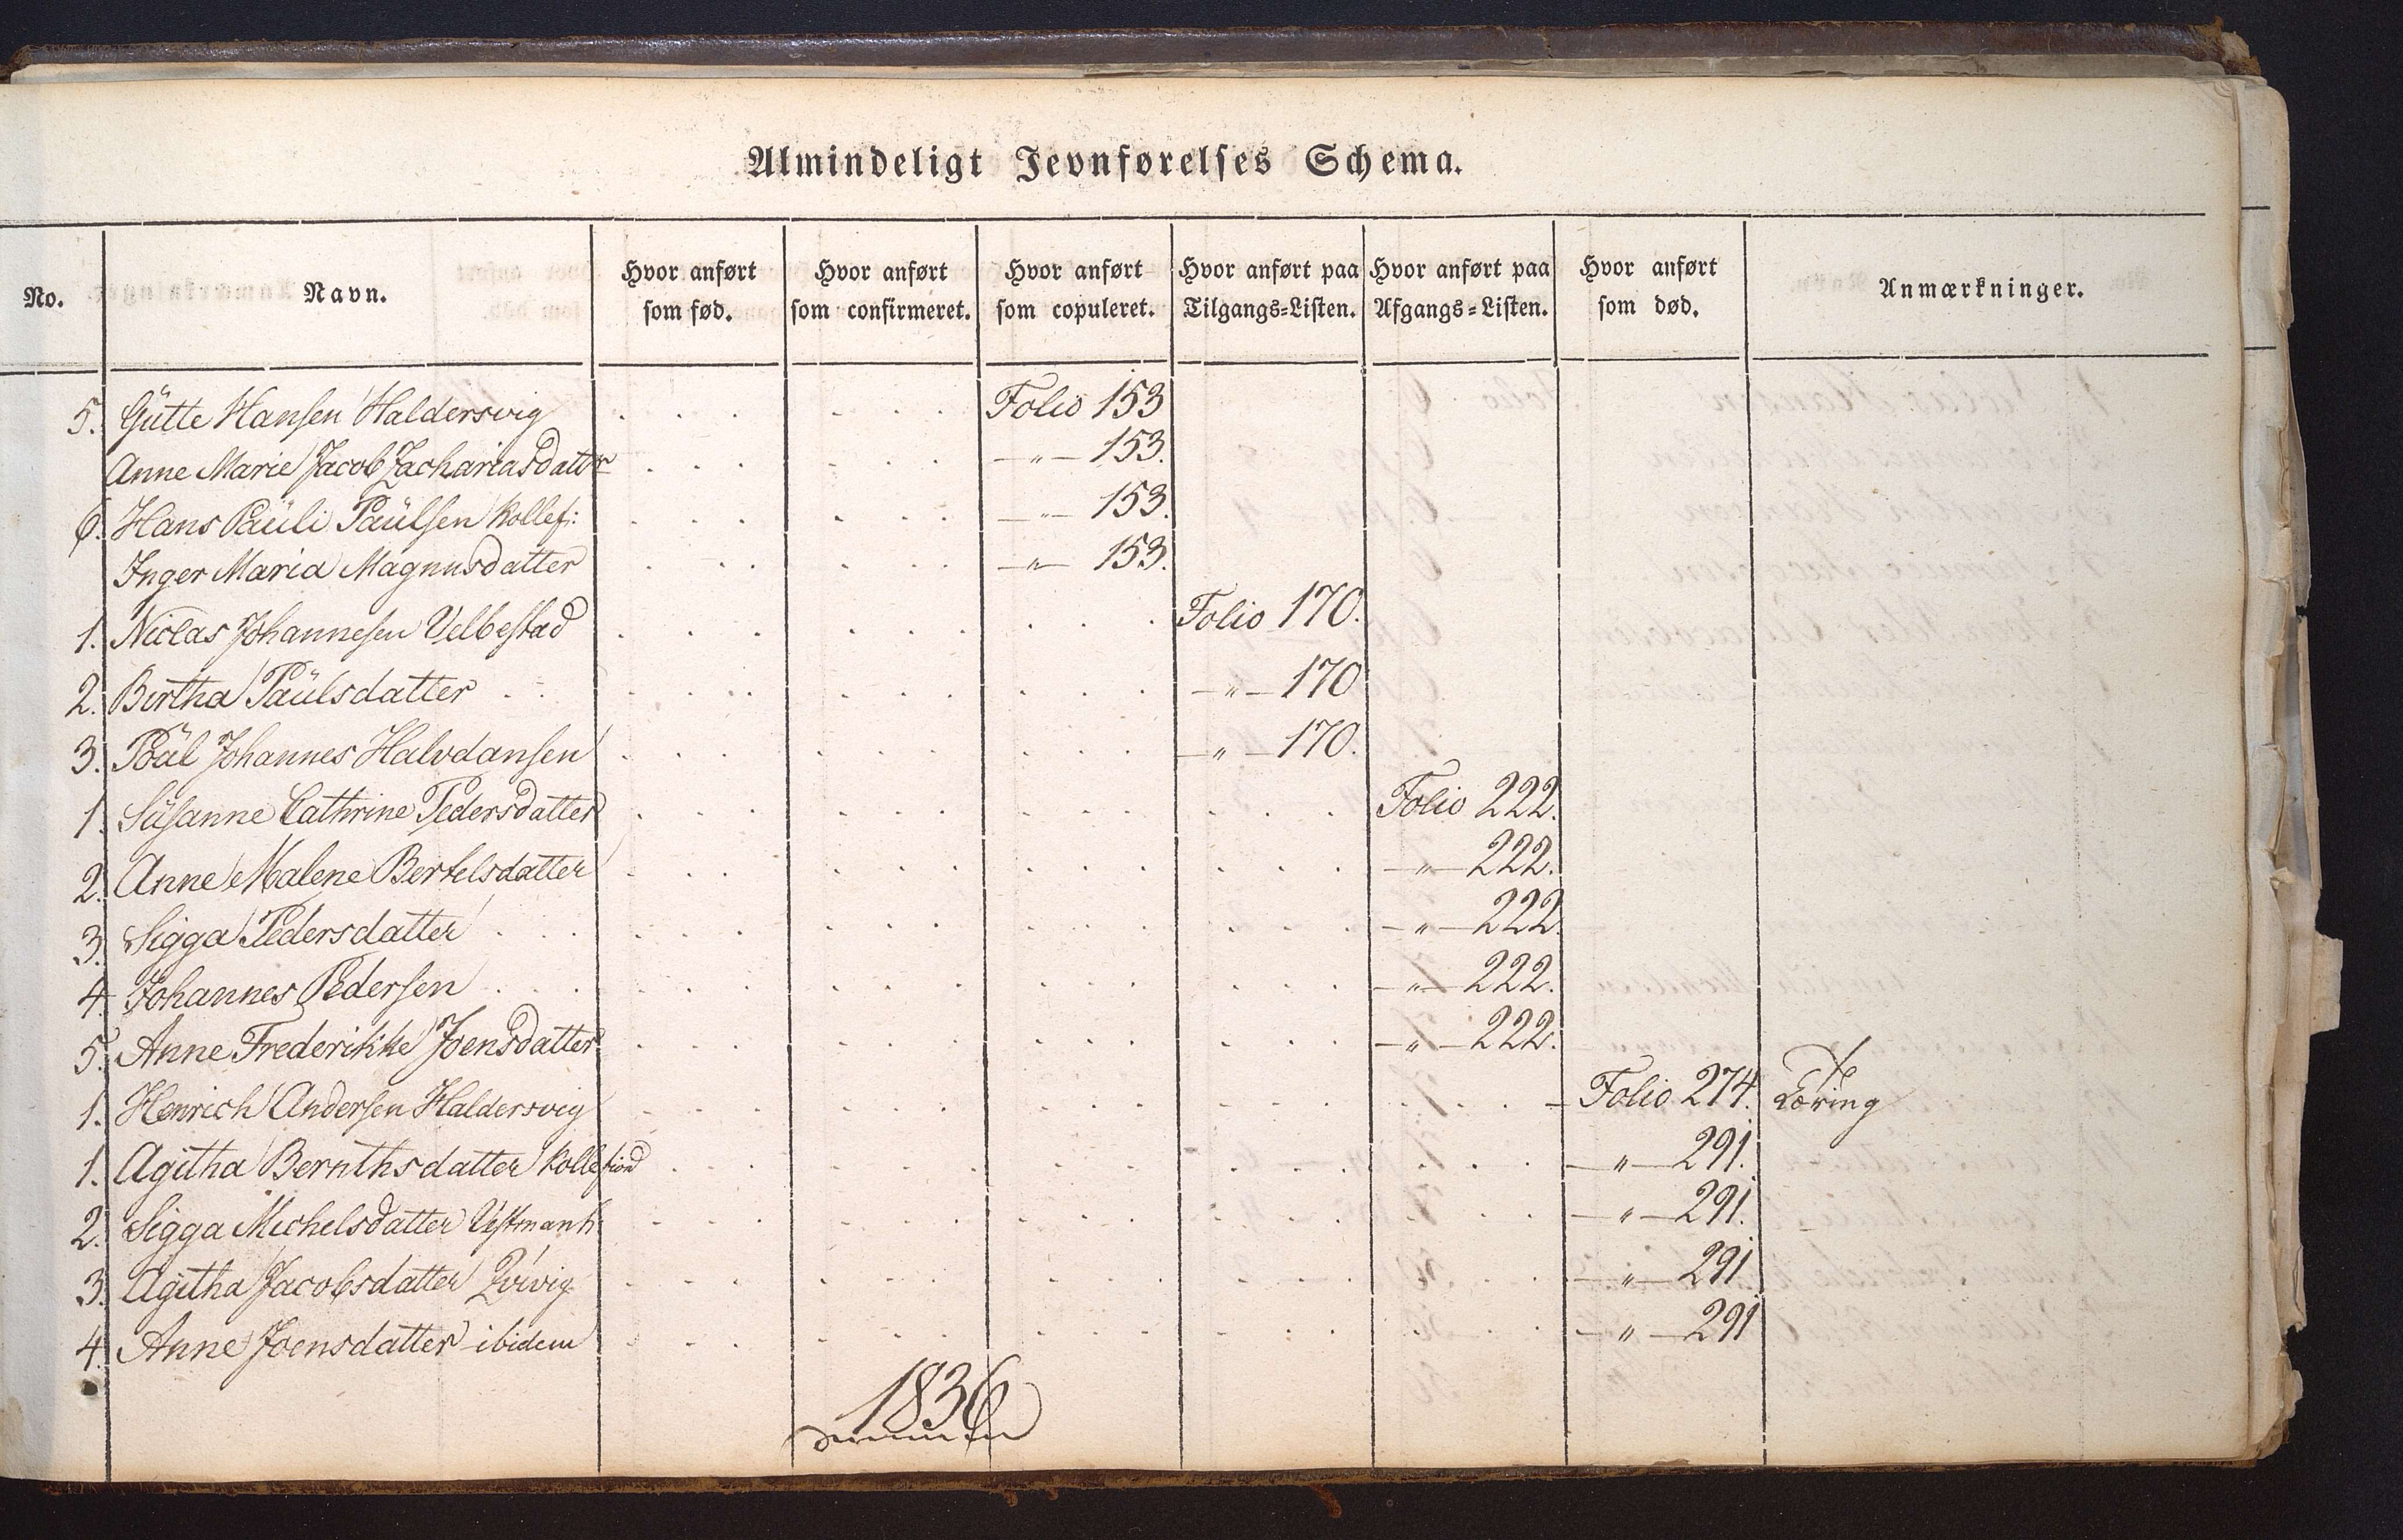 Almindeligt Jevnførelses Schema.
No. Navn. Hvor anført som fød. Hvor anført som confirmeret. Hvor anført som copuleret. Hvor anført paa Tilgangs-Listen. Hvor anført paa Afgangs-Listen. Hvor anført som død. Anmærkninger.
5. Gütte Hansen Haldersvig . . . . . . Folio 153
Anne Marie Jacob Zachariasdatter . . . . . . —"— 153.
6. Hans Paüli Paülsen Kollef: . . . . . . —"— 153.
Inger Maria Magnusdatter . . . . . . —"— 153.
1. Niclas Johannesen Velbestad . . . . . . . . . Folio 170.
2. Birtha Paülsdatter . . . . . . . . . —"— 170
3. Poäl Johannes Halvdansen . . . . . . . . . —"— 170.
1. Süsanne Cathrine Pedersdatter . . . . . . . . . . . . Folio 222.
2. Anne Malene Bertelsdatter . . . . . . . . . . . . —"— 222.
3. Sigga Pedersdatter . . . . . . . . . . . . —"— 222.
4. Johannes Pedersen . . . . . . . . . . . . —"— 222.
5. Anne Frederikke Joensdatter . . . . . . . . . . . . —"— 222.
1. Henrich Andersen Haldersvig . . . . . . . . . . . . . . . Folio 274.
1. Agitha Bernthsdatter Kollefiord . . . . . . . . . . . . . . . —"— 291.
2. Sigga Michelsdatter Vestmanh: . . . . . . . . . . . . . . . —"— 291.
3. Agitha Jacobsdatter Qvivig . . . . . . . . . . . . . . . —"— 291
4. Anne Joensdatter ibidem . . . . . . . . . . . . . . . —"— 291
1836